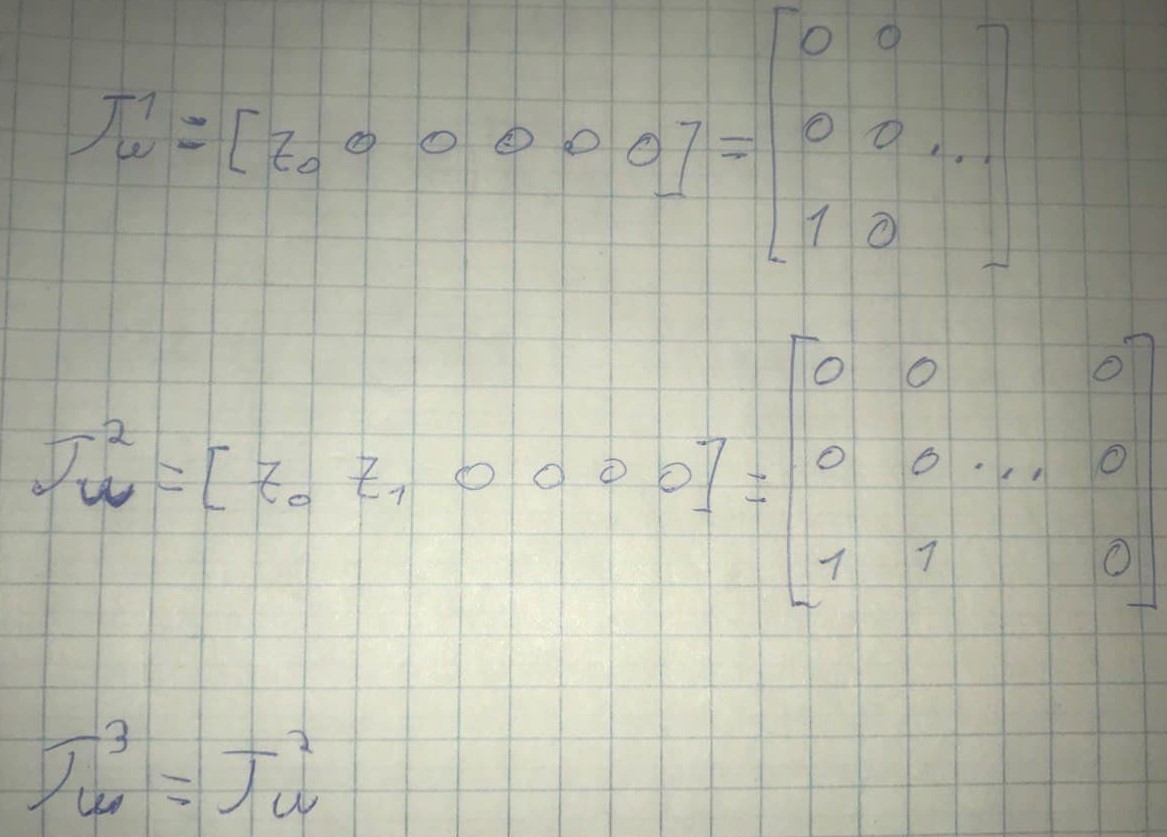 J_ω^1 = [z_0 0 0 0 0 0] = [0 0; 0 0 ...; 1 0]
J_ω^2 = [z_0 z_1 0 0 0 0] = [0 0 0; 0 0 ... 0; 1 1 0]
J_ω^3 = J_ω^2